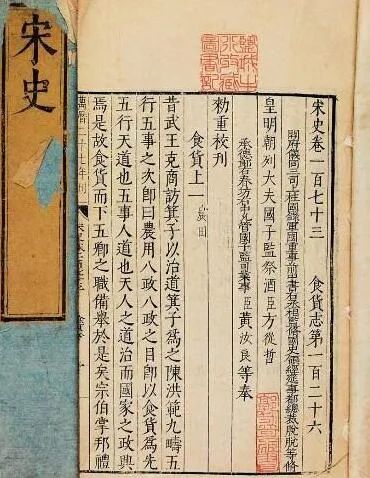 宋史
宋史卷一百七十三 食貨志第一百二十六
開府儀同三司上柱國錄軍國重事前中書右丞相監修國史領經筵事都總裁脫脫等修
皇明朝列大夫國子監祭酒臣方從哲
承德郎右春坊右中允管國子監司業事臣黃汝良等奉
勅重校刊
食貨上一 農田
昔武王克商訪箕子以治道箕子爲之陳洪範九疇五
行五事之次即曰農用八政八政之目即以食貨爲先
五行天道也五事人道也天人之道治而國家之政興
焉是故食貨而下五卿之職備舉於是矣宗伯掌邦禮
萬曆二十七年刊